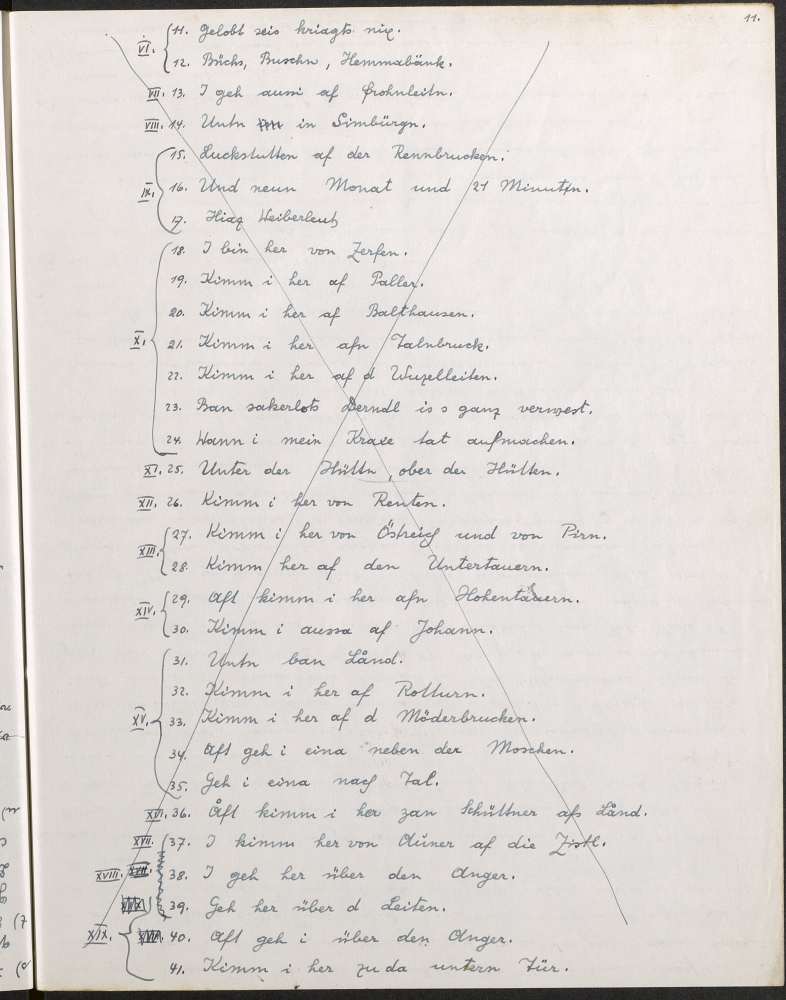 11.
VI. 11. Gelobt seis kriagts nix.
12. Büchs, Buschn, Hemmabänk.
VII. 13. I geh aussi af Frohnleitn.
VIII. 14. Untn in Simbürgn.
IX. 15. Luckstutten af der Rennbrucken.
16. Und neun Monat und 21 Minutn.
17. Hiaz Weiberleut
X. 18. I bin her von Zerfen.
19. Kimm i her af Paller.
20. Kimm i her af Balthausen.
21. Kimm i her afn Talnbruck.
22. Kimm i her af d Wuzelleiten.
23. Ban sakerlots Derndl is s ganz verwest.
24. Wann i mein Kraxe tat aufmachen.
XI. 25. Unter der Hüttn, ober der Hütten.
XII. 26. Kimm i her von Reuten.
XIII. 27. Kimm i her von Östreich und von Pirn.
28. Kimm her af den Untertauern.
XIV. 29. Aft kimm i her afn Hohentauern.
30. Kimm i aussa af Johann.
XV. 31. Untn ban Lånd.
32. Kimm i her af Rotturn.
33. Kimm i her af d Möderbrucken.
34. Aft geh i eina neben der Moschen.
35. Geh i eina nach Tal.
XVI. 36. Åft kimm i her zan Schüttner afs Lånd.
XVII. 37. I kimm her von Auner af die Zistl.
XVIII. 38. I geh her über den Anger.
39. Geh her über d Leiten.
XIX. 40. Aft geh i über den Anger.
41. Kimm i her zu da untern Tür.